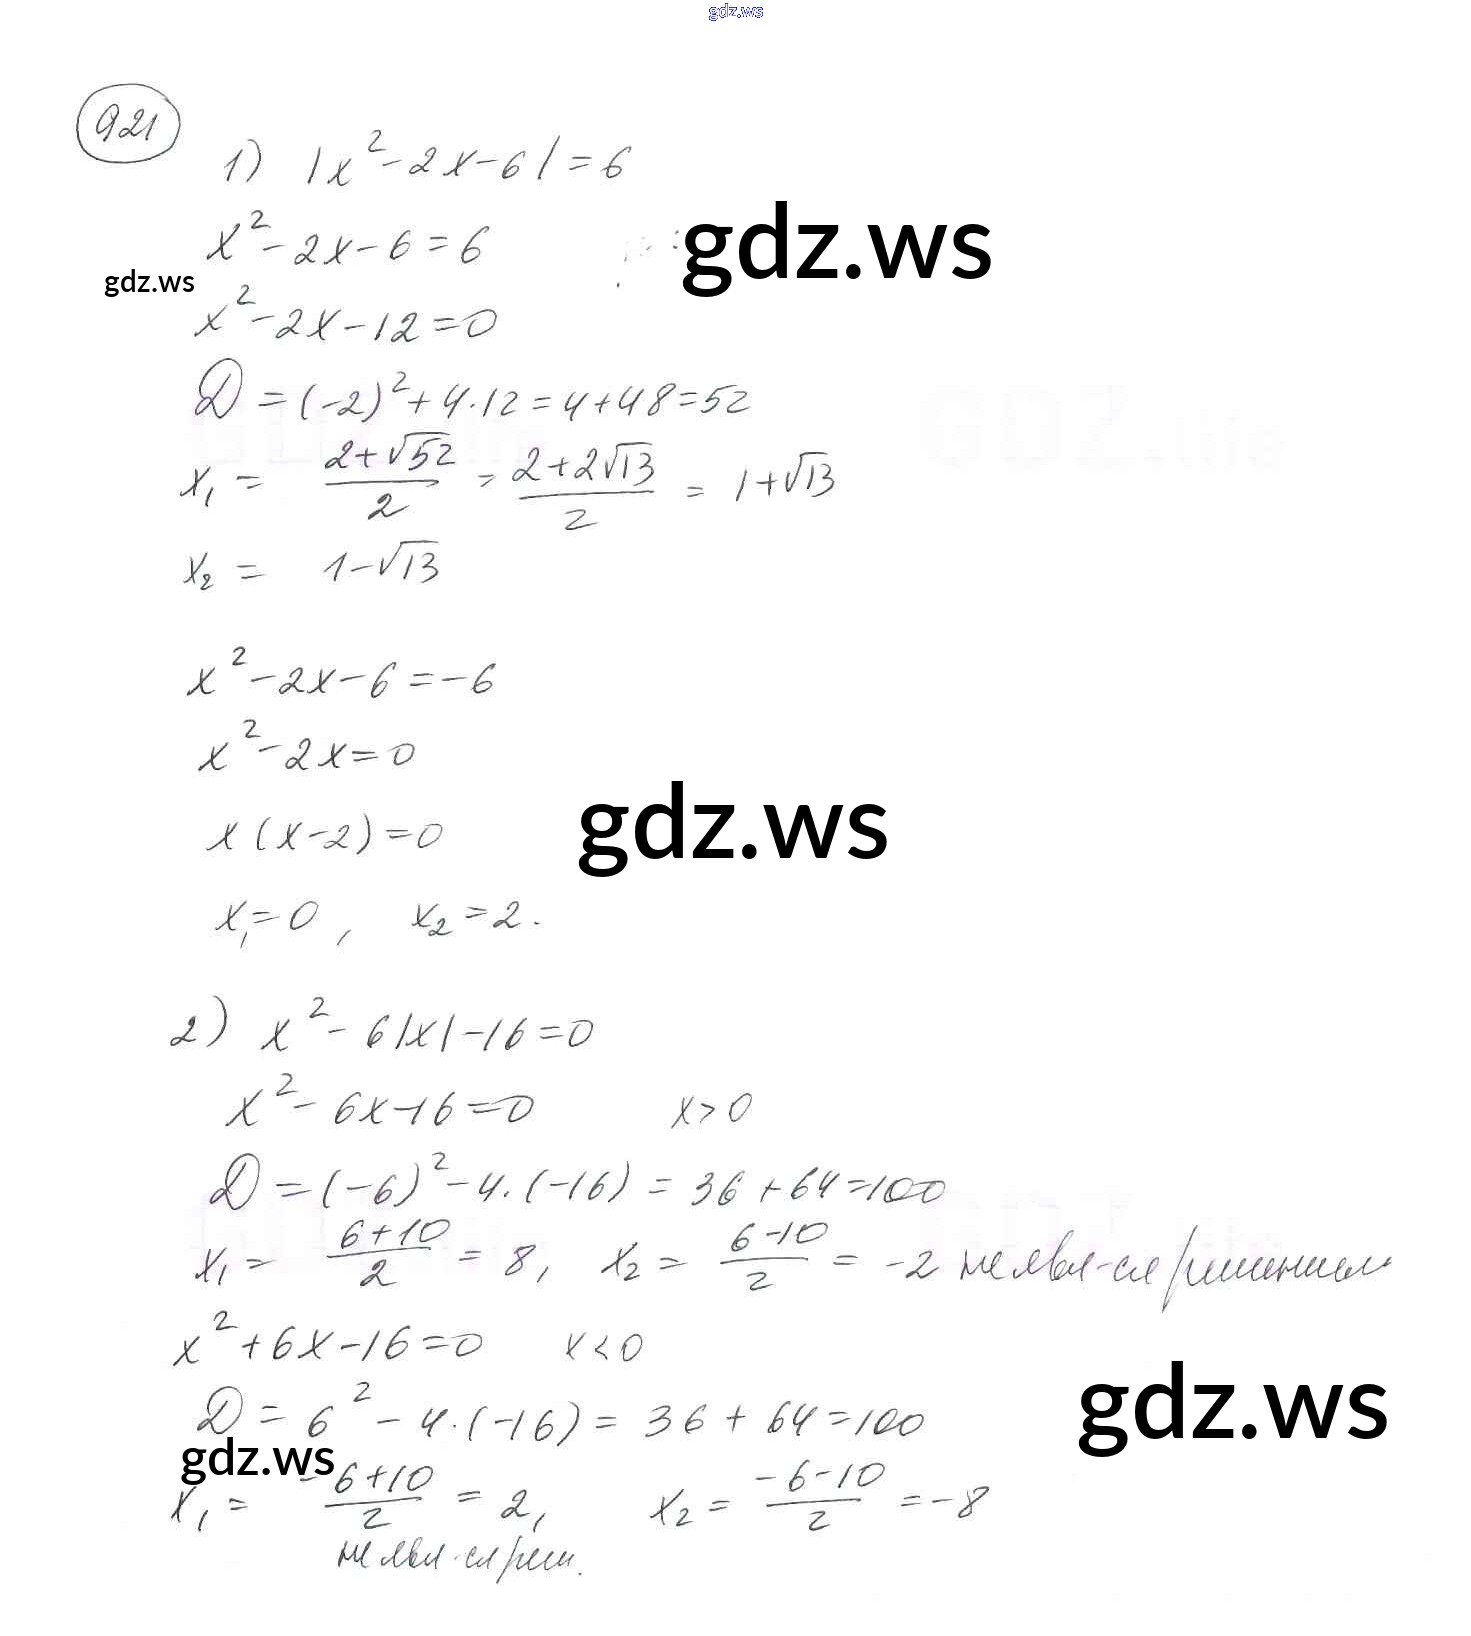 gdz.ws
921
1) |x²-2x-6|=6
x²-2x-6=6
gdz.ws
gdz.ws
x²-2x-12=0
D=(-2)²+4·12=4+48=52
GDZ.life GDZ.life
x₁ = (2+√52)/2 = (2+2√13)/2 = 1+√13
x₂ = 1-√13
x²-2x-6=-6
x²-2x=0
x(x-2)=0
gdz.ws
x₁=0, x₂=2.
2) x²-6|x|-16=0
x²-6x-16=0 x>0
D=(-6)²-4·(-16)=36+64=100
x₁= (6+10)/2 = 8, x₂= (6-10)/2 = -2 не явл-ся решением
x²+6x-16=0 x<0
gdz.ws
D=6²-4·(-16)=36+64=100
gdz.ws
x₁= (-6+10)/2 = 2, x₂= (-6-10)/2 =-8
не явл-ся реш.